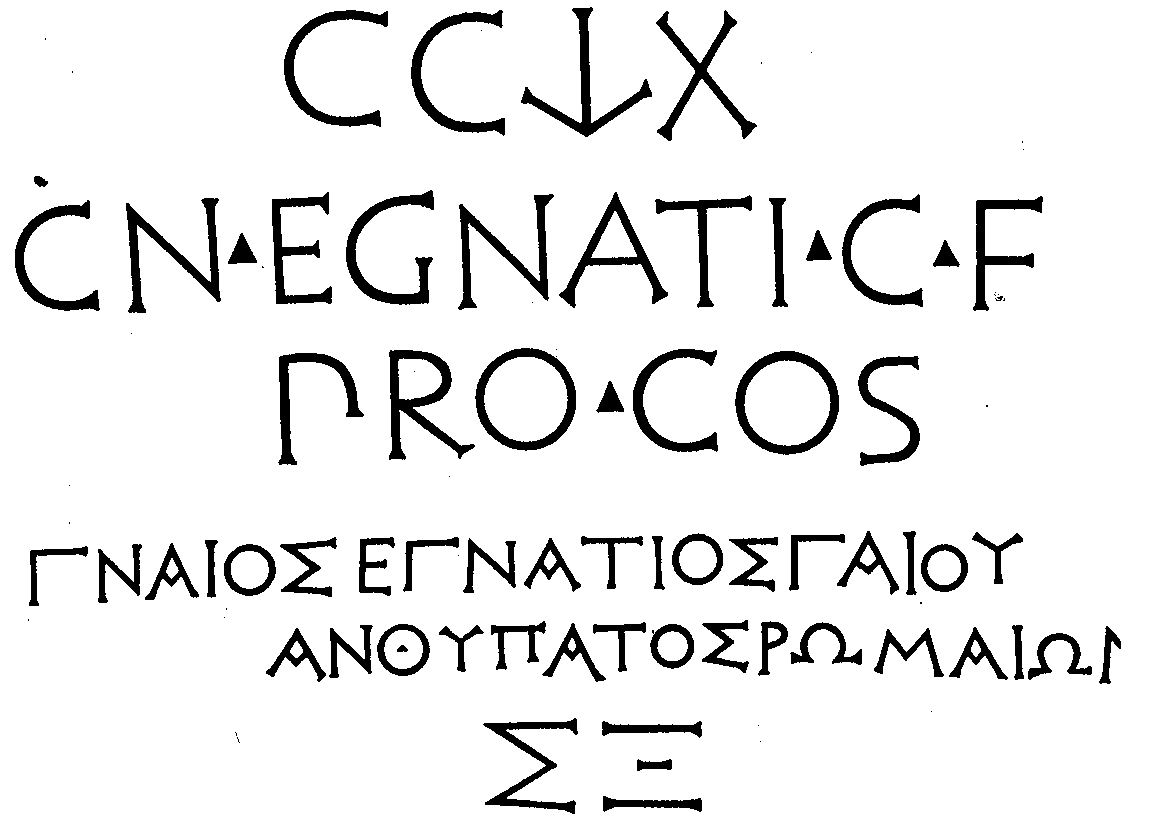 CC↓X
CN·EGNATI·C·F
PRO·COS
ΓΝΑΙΟΣ ΕΓΝΑΤΙΟΣ ΓΑΙΟΥ
ΑΝΘΥΠΑΤΟΣ ΡΩΜΑΙΩΝ
ΣΞ